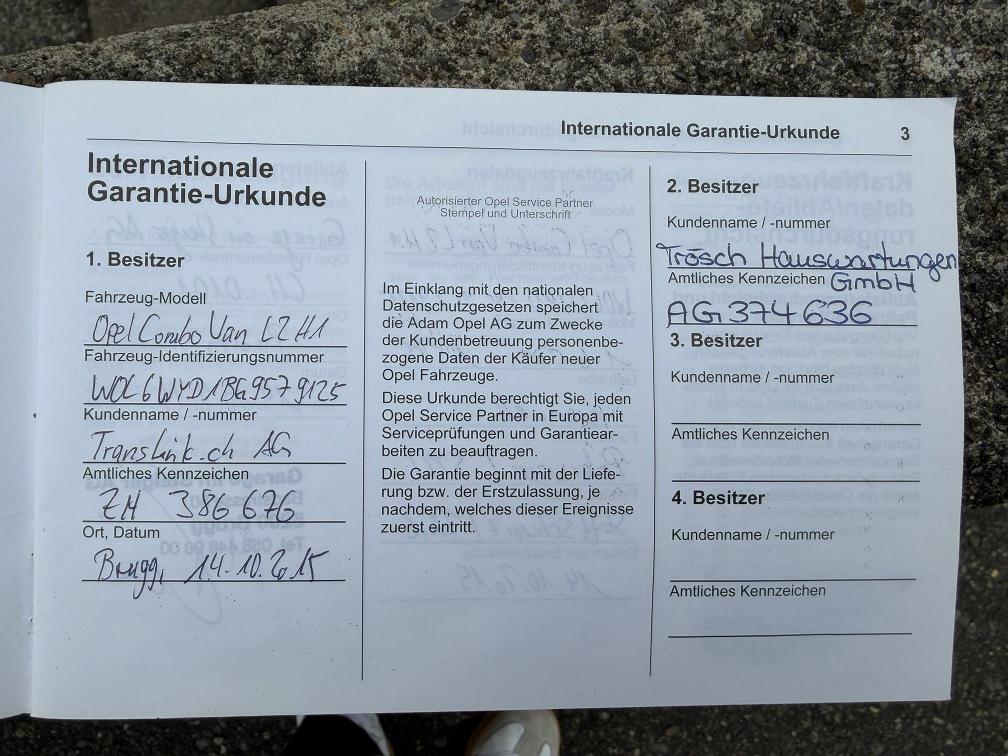 Internationale Garantie-Urkunde 3
Internationale
Garantie-Urkunde
1. Besitzer
Fahrzeug-Modell
Opel Combo Van L2H1
Fahrzeug-Identifizierungsnummer
WOL6WYD1BG9579125
Kundenname / -nummer
TransLink.ch AG
Amtliches Kennzeichen
ZH 386 676
Ort, Datum
Brugg, 14.10.2015
Autorisierter Opel Service Partner
Stempel und Unterschrift
Im Einklang mit den nationalen
Datenschutzgesetzen speichert
die Adam Opel AG zum Zwecke
der Kundenbetreuung personenbe-
zogene Daten der Käufer neuer
Opel Fahrzeuge.
Diese Urkunde berechtigt Sie, jeden
Opel Service Partner in Europa mit
Serviceprüfungen und Garantiear-
beiten zu beauftragen.
Die Garantie beginnt mit der Liefe-
rung bzw. der Erstzulassung, je
nachdem, welches dieser Ereignisse
zuerst eintritt.
2. Besitzer
Kundenname / -nummer
Trösch Hauswartungen
Amtliches Kennzeichen GmbH
AG 374 636
3. Besitzer
Kundenname / -nummer
Amtliches Kennzeichen
4. Besitzer
Kundenname / -nummer
Amtliches Kennzeichen